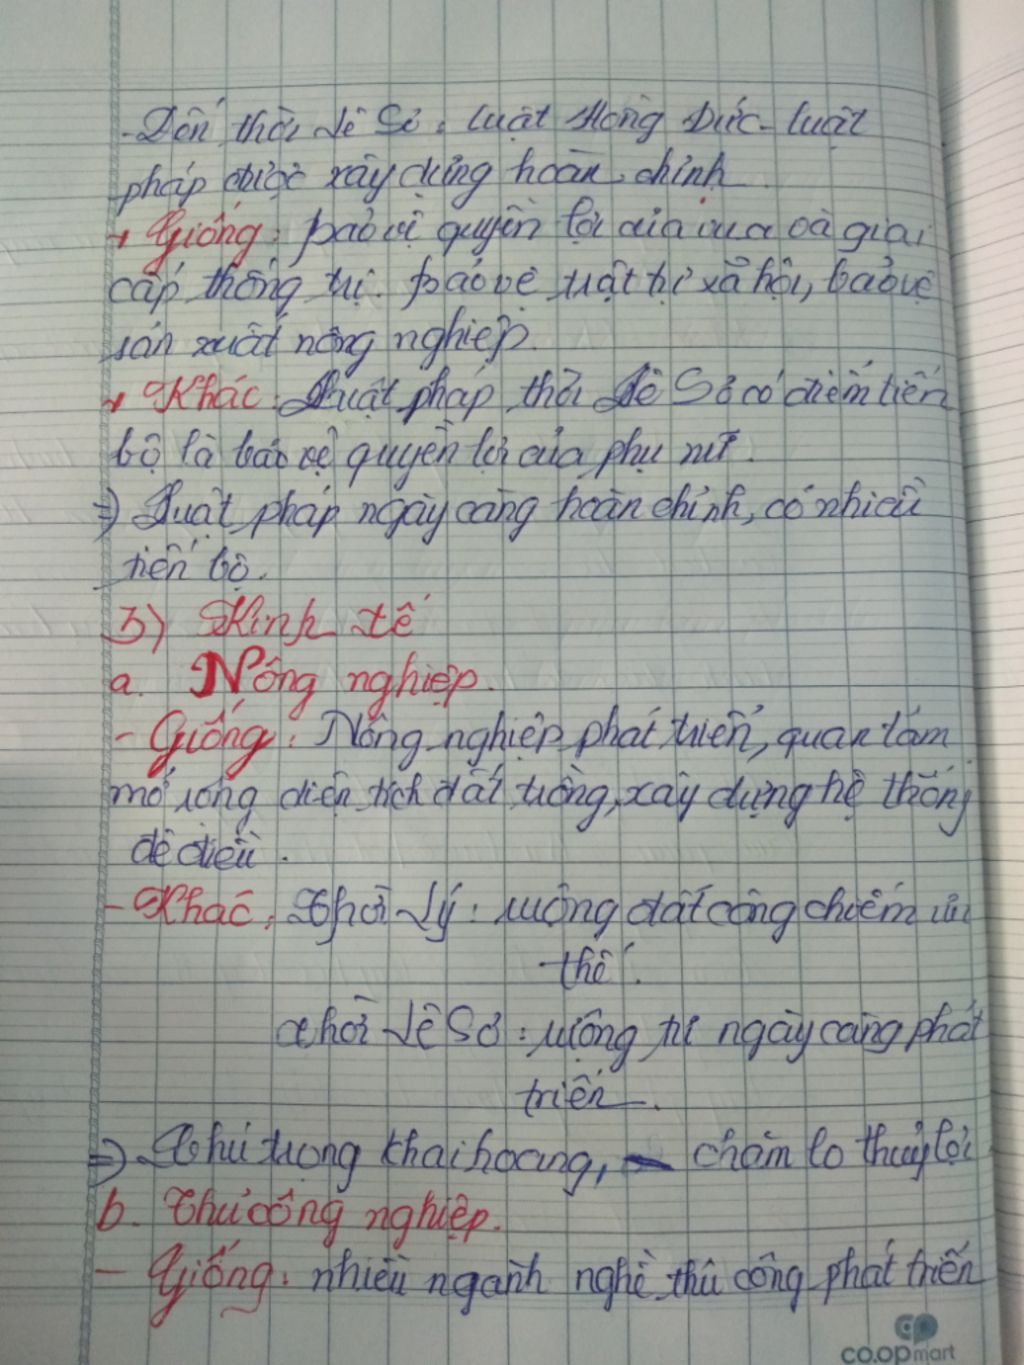 - Đến thời Lê Sơ: luật Hồng Đức - luật
pháp được xây dựng hoàn chỉnh
+ Giống: bảo vệ quyền lợi của vua và giai
cấp thống trị. bảo vệ trật tự xã hội, bảo vệ
sản xuất nông nghiệp.
+ Khác: Luật pháp thời Lê Sơ có điểm tiến
bộ là bảo vệ quyền lợi của phụ nữ.
=> Luật pháp ngày càng hoàn chỉnh, có nhiều
tiến bộ.
3) Kinh tế
a. Nông nghiệp.
- Giống: Nông nghiệp phát triển, quan tâm
mở rộng diện tích đất trồng, xây dựng hệ thống
đê điều.
- Khác: Thời Lý: ruộng đất công chiếm ưu
thế.
Thời Lê Sơ: ruộng tư ngày càng phát
triển.
=> Chú trọng khai hoang, chăm lo thuỷ lợi
b. Thủ công nghiệp.
- Giống: nhiều ngành nghề thủ công phát triển
co.opmart